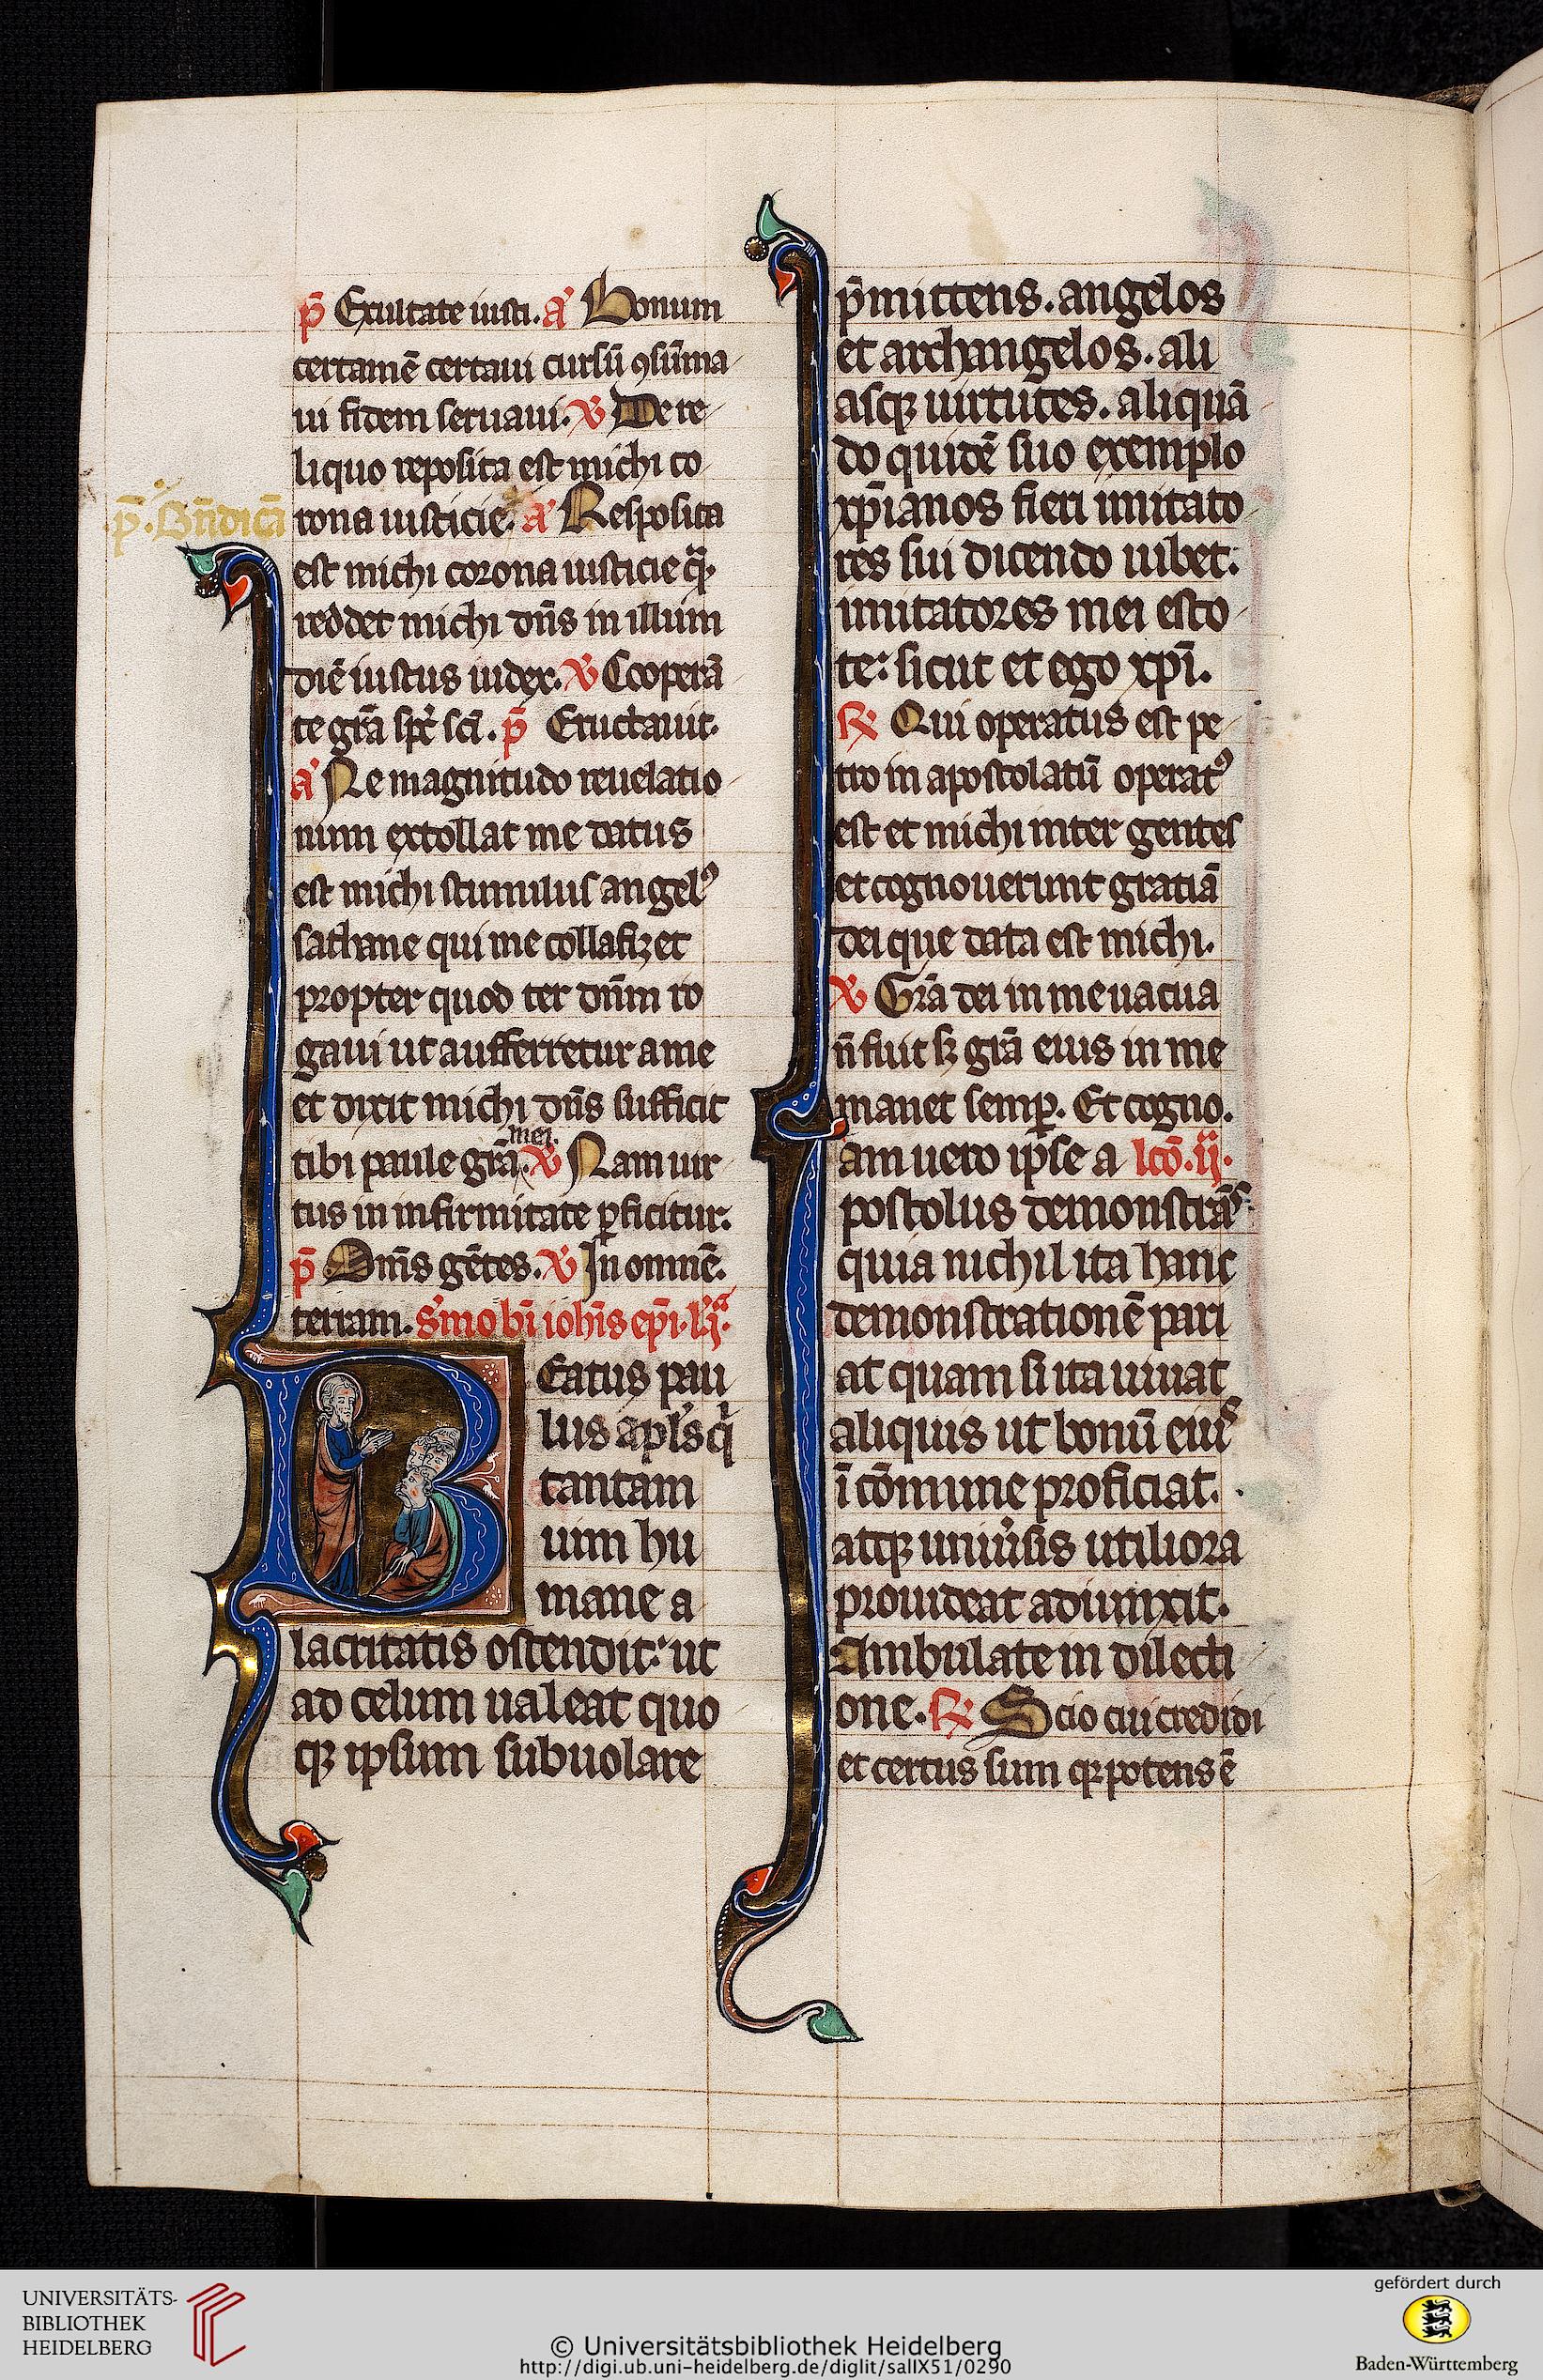 p̄ Exultate iusti. a̾ Bonum
certamē certaui cursū ꝯsūma
ui fidem seruaui. ℣ De re
liquo reposita est michi co
p̄. Bn̄dicā
rona iusticie. a̾ Resposita
est michi corona iusticie q̄.
reddet michi dn̄s in illum
diē iustus iudex. ℣ Cooperā
te grā sp̄c sc̄i. p̄ Eructauit.
a̾ Ne magnitudo reuelatio
num extollat me datus
est michi stimulus angelꝰ
sathane qui me collafizet
propter quod ter dn̄m ro
gaui ut aufferretur a me
et dixit michi dn̄s sufficit
tibi paule grā mei. ℣ Nam uir
tus in infirmitate ꝑficitur.
p̄ Om̄s gētes. ℣ In omnē.
terram. s̾mo bī ioh̄is ep̄i. l̾.j.ᵃ
Beatus pau
lus apl̾s qͥ
tantam
uim hu
mane a
lacritatis ostendit: ut
ad celum ualeat quo
qꝫ ipsum subuolare
p̄mittens. angelos
et archangelos. ali
asqꝫ uirtutes. aliquā
do quidē suo exemplo
xp̄ianos fieri imitato
res sui dicendo iubet:
imitatores mei esto
te: sicut et ego xp̄i.
℟ Qui operatus est pe
tro in apostolatū operatꝰ
est et michi inter gentes
et cognouerunt gratiā
dei que data est michi.
℣ Grā dei in me uacua
n̄ fuit sꝫ grā eius in me
manet semꝑ. Et cogno.
Iam uero ipse a lcō. ij.
postolus demonstrās
quia nichil ita hanc
demonstrationē pari
at quam si ita uiuat
aliquis ut bonū eius
ī cōmune proficiat.
atqꝫ uniu̾sis utiliora
prouideat adiunxit.
Ambulate in dilecti
one. ℟ Scio cui credidi
et certus sum qꝛ potens ē
UNIVERSITÄTS-
BIBLIOTHEK
HEIDELBERG
© Universitätsbibliothek Heidelberg
http://digi.ub.uni-heidelberg.de/diglit/salIX51/0290
gefördert durch
Baden-Württemberg